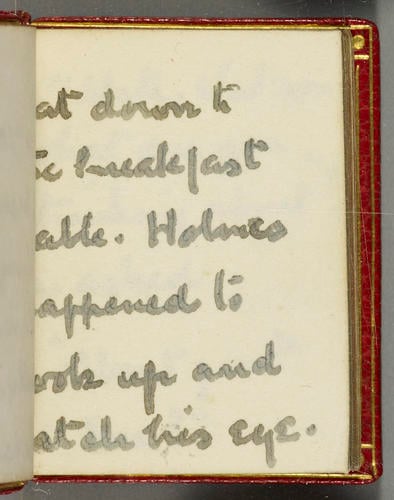 at down to
he breakfast
able. Holmes
appened to
ook up and
atch his eye.